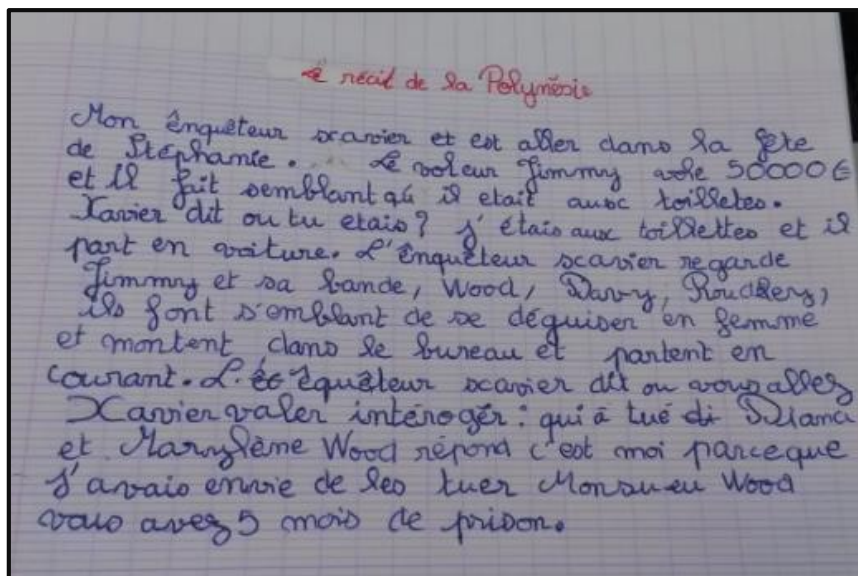 Le récit de la Polynésie
Mon ênquêteur xavier et est aller dans la fête
de Stéphanie. Le voleur Jimmy vole 50000€
et il fait semblant qu il etait aux toilletes.
Xavier dit ou tu etais? J'étais aux toillettes et il
part en voiture. L'ênquêteur xavier regarde
Jimmy et sa bande, Wood, Davy,
ils font s'emblant de se déguiser en femme
et montent dans le bureau et partent en
courant. L' êquêteur xavier dit ou vous allez
Xavier valer intérogér : qui à tué di Diana
et Marylène Wood répond c'est moi parceque
J'avais envie de les tuer Monsueu Wood
vous avez 5 mois de prison.